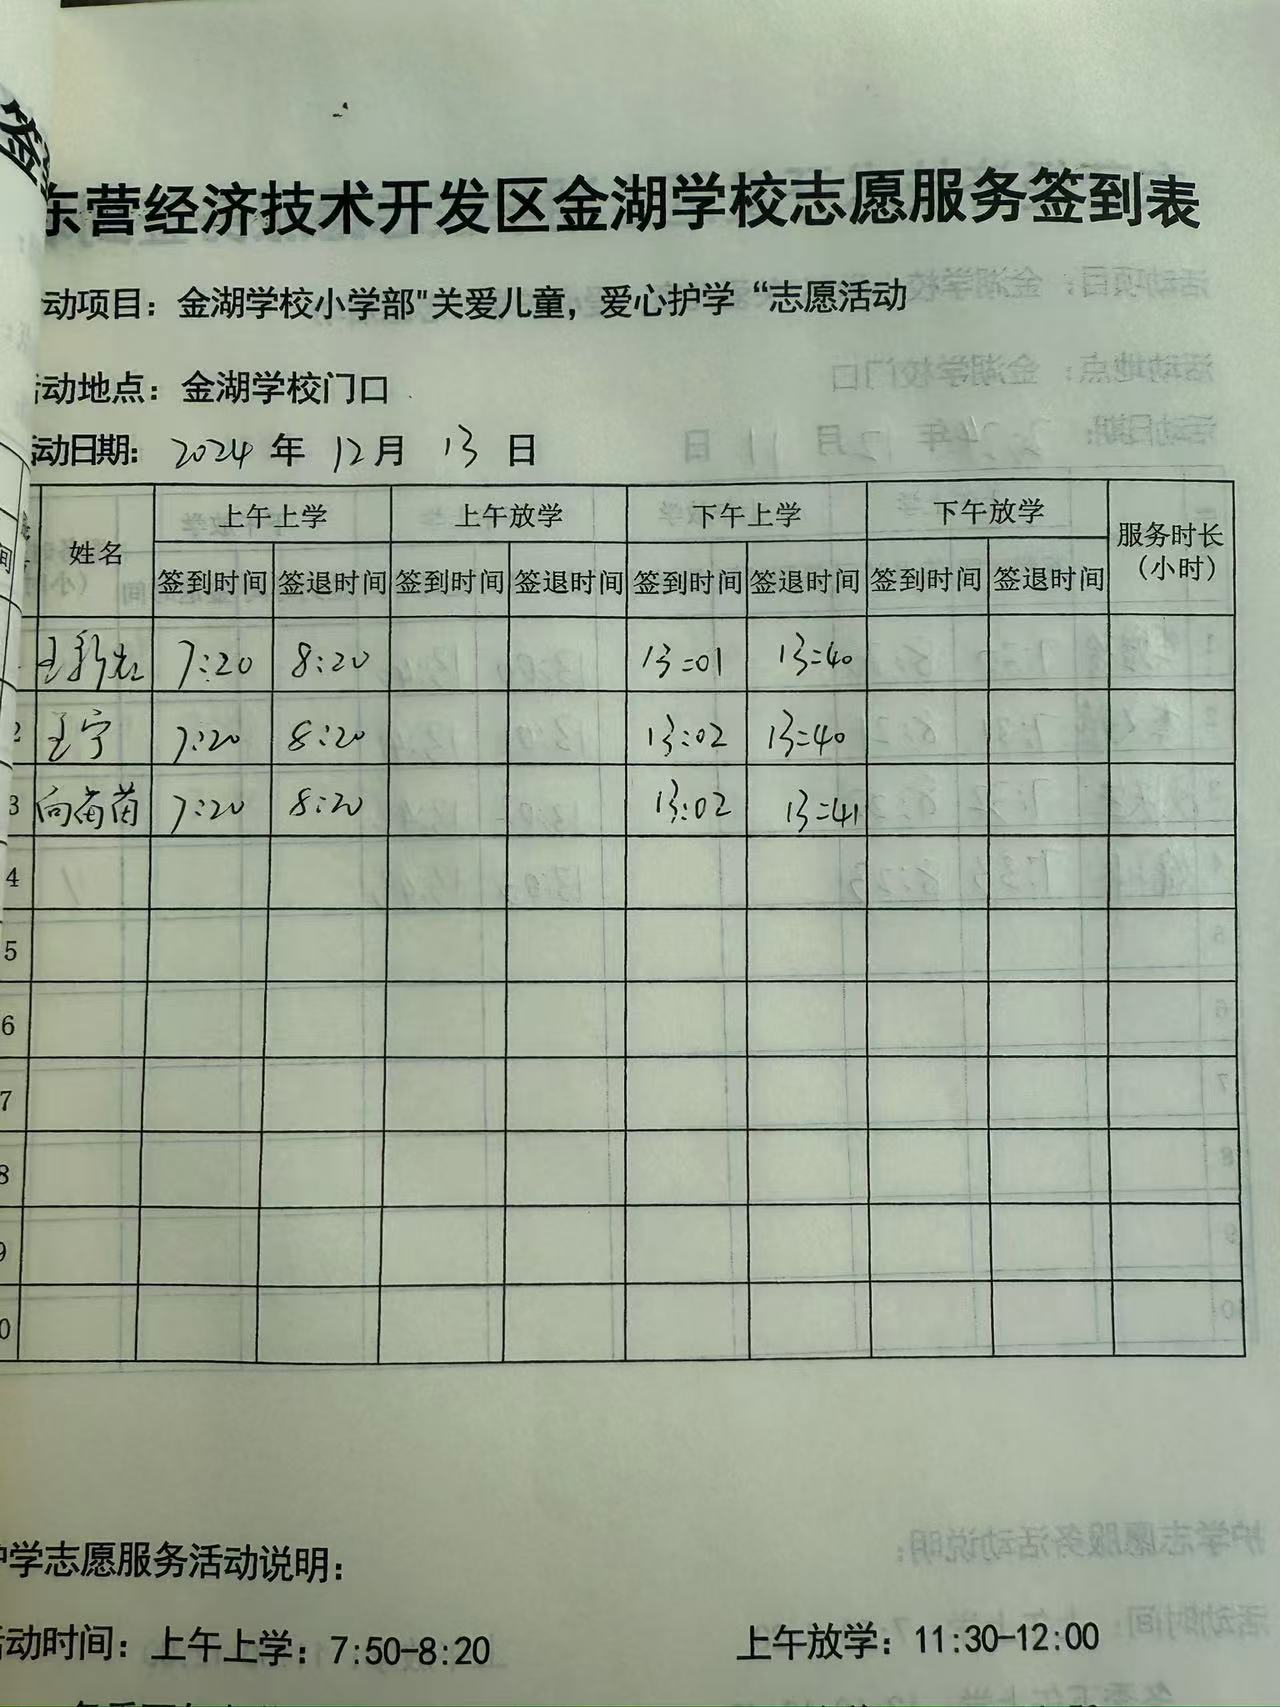 东营经济技术开发区金湖学校志愿服务签到表
动项目：金湖学校小学部"关爱儿童，爱心护学“志愿活动
活动地点：金湖学校门口
活动日期：2024 年 12月 13 日
姓名 上午上学 上午放学 下午上学 下午放学 服务时长（小时）
签到时间 签退时间 签到时间 签退时间 签到时间 签退时间 签到时间 签退时间
7:20 8:20 13:01 13:40
2 王宁 7:20 8:20 13:02 13:40
3 向苗苗 7:20 8:20 13:02 13:41
4
5
6
7
8
9
0
护学志愿服务活动说明：
活动时间：上午上学：7:50-8:20 上午放学：11:30-12:00